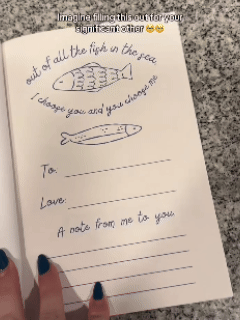 Imagine filling this out for your
significant other 🥹🥹
out of all the fish in the sea,
I choose you and you choose me
To:
Love:
A note from me to you